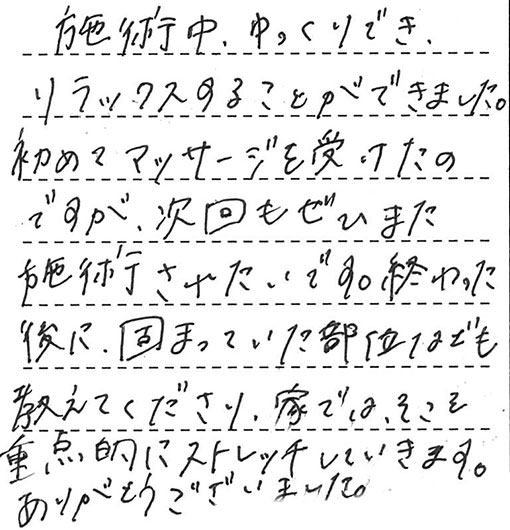 施術中、ゆっくりでき、
リラックスすることができました。
初めてマッサージを受けたの
ですが、次回もぜひまた
施術されたいです。終わった
後に、固まっていた部位なども
教えてくださり、家では、そこを
重点的にストレッチしていきます。
ありがとうございました。